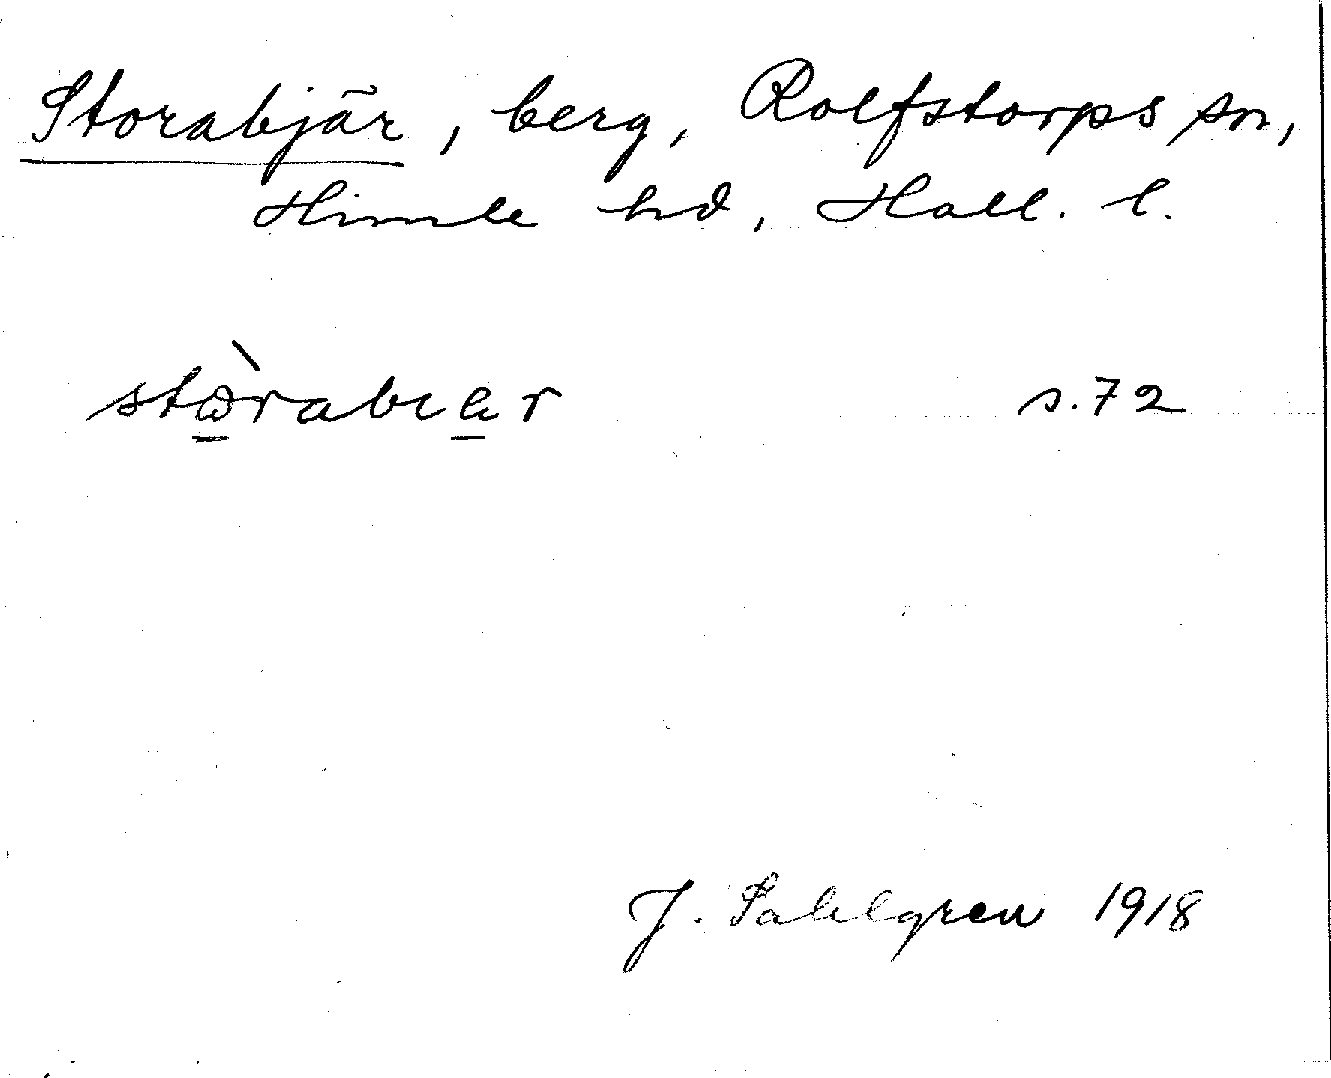 Storabjär, berg, Rolfstorps sn,
Himle hd, Hall. l.
s. 72
J. Sahlgren 1918